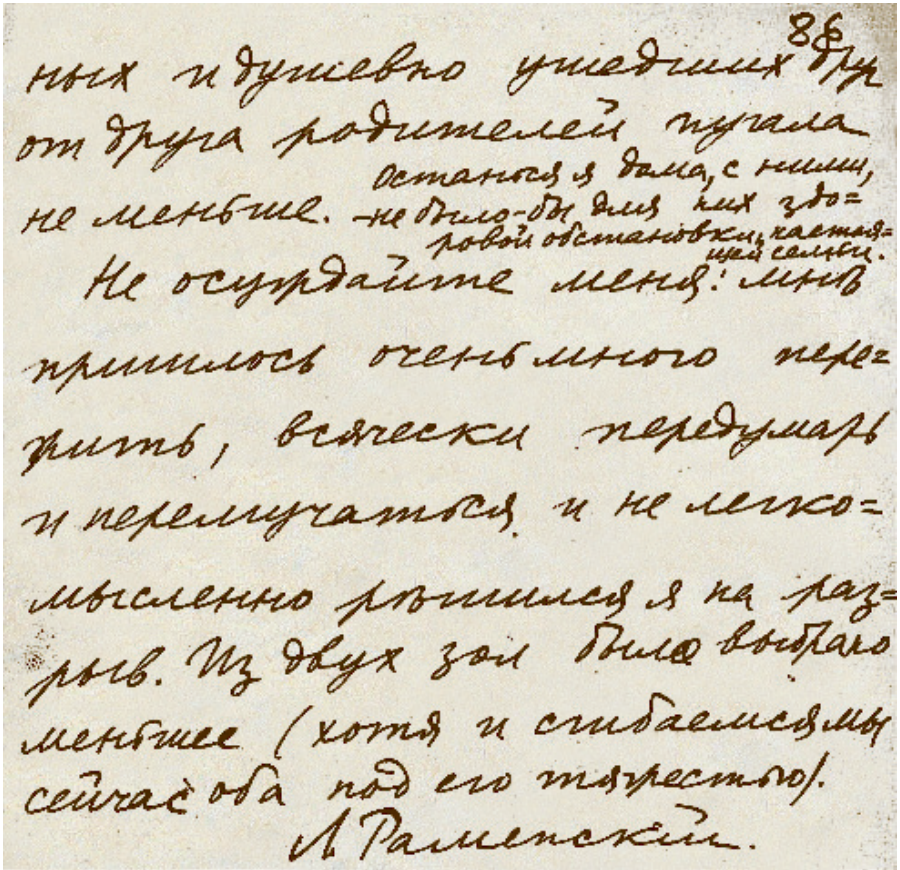 86
ных и душевно ушедших друг
от друга родителей пугала
не меньше. Останься я дома, с ними,
- не было-бы для них здо=
ровой обстановки, настоя=
щей семьи.
Не осуждайте меня: мнѣ
пришлось очень много пере=
жить, всячески передумать
и перемучаться и не легко=
мысленно рѣшился я на раз=
рыв. Из двух зол было выбрано
меньшее (хотя и сгибаемся мы
сейчас оба под его тяжестью).
Л Раменский.